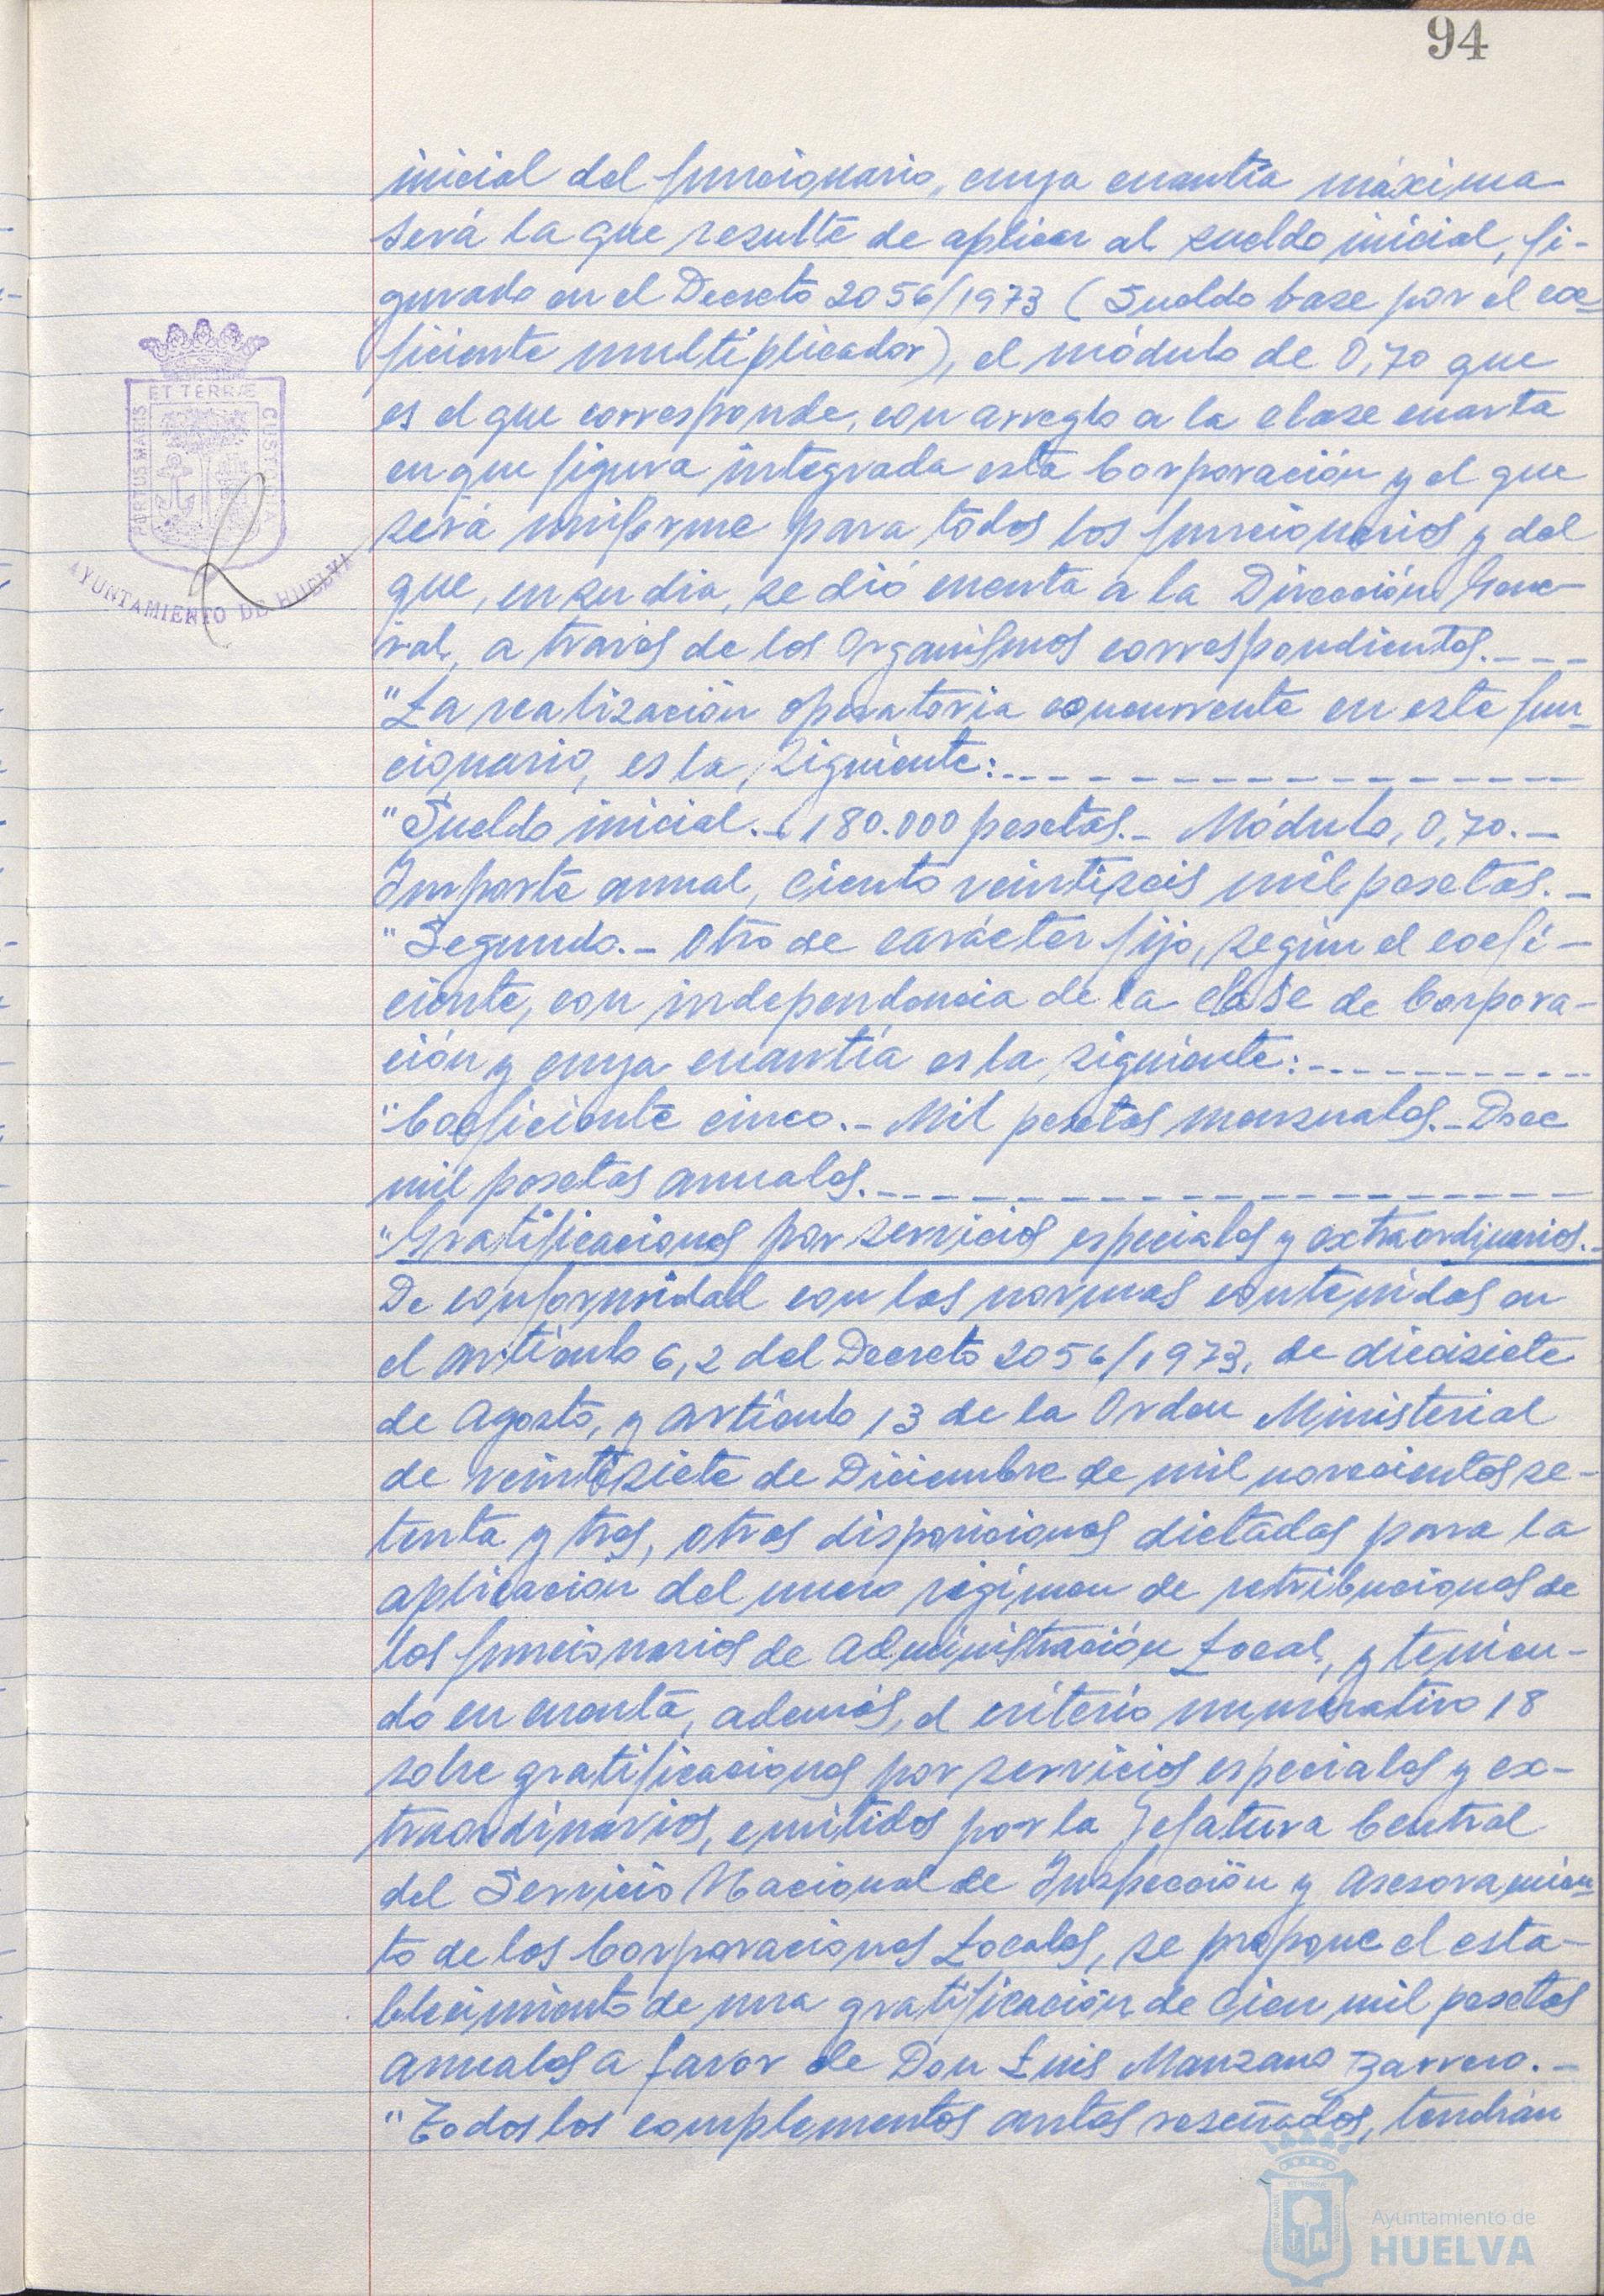 94
inicial del funcionario, cuya cuantía máxima
será la que resulte de aplicar al sueldo inicial, fi-
gurado en el Decreto 2056/1973 (Sueldo base por el coe-
ficiente multiplicador), el módulo de 0,70 que
es el que corresponde, con arreglo a la clase cuarta
en que figura integrada esta Corporación y el que
será uniforme para todos los funcionarios y del
que, en su dia, se dió cuenta a la Dirección Gene-
ral, a través de los Organismos correspondientes.----
"La realización operatoria concurrente en este fun-
cionario, es la, siguiente:------------------
"Sueldo inicial.- 180.000 pesetas.- Módulo, 0,70.-
Importe anual, ciento veintiseis mil pesetas.-
"Segundo.- Otro de carácter fijo, según el coefi-
ciente, con independencia de la clase de Corpora-
ción y cuya cuantía es la siguiente:-----------
"Coeficiente cinco.- Mil pesetas mensuales.- Doce
mil pesetas anuales.--------------------
"Gratificaciones por servicios especiales y extraordinarios.-
De conformidad con las normas contenidas en
el artículo 6,2 del Decreto 2056/1973, de diecisiete
de Agosto, y artículo 13 de la Orden Ministerial
de veintisiete de Diciembre de mil novecientos se-
tenta y tres, otras disposiciones dictadas para la
aplicación del nuevo régimen de retribuciones de
los funcionarios de Administración Local, y tenien-
do en cuenta, además, el criterio numerativo 18
sobre gratificaciones por servicios especiales y ex-
traordinarios, emitidos por la Jefatura Central
del Servicio Nacional de Inspección y Asesoramien-
to de las Corporaciones Locales, se propone el esta-
blecimiento de una gratificación de cien mil pesetas
anuales a favor de Don Luis Manzano Barrero.-
"Todos los complementos antes reseñados, tendrán
PORTUS MARIS
ET TERRÆ
CUSTODIA
AYUNTAMIENTO DE HUELVA
Ayuntamiento de
HUELVA